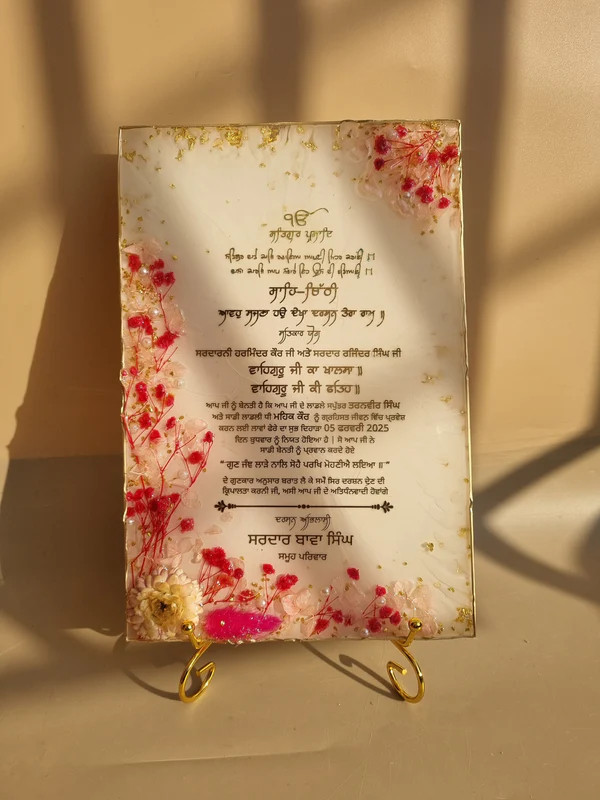 ੴ
ਸਤਿਗੁਰ ਪ੍ਰਸਾਦਿ
ਸਾਹਿ-ਚਿੱਠੀ
ਆਵਹੁ ਸਜਣਾ ਹਉ ਦੇਖਾ ਦਰਸਨੁ ਤੇਰਾ ਰਾਮ ॥
ਸਤਿਕਾਰ ਯੋਗ
ਸਰਦਾਰਨੀ ਹਰਮਿੰਦਰ ਕੌਰ ਜੀ ਅਤੇ ਸਰਦਾਰ ਰਜਿੰਦਰ ਸਿੰਘ ਜੀ
ਵਾਹਿਗੁਰੂ ਜੀ ਕਾ ਖਾਲਸਾ ॥
ਵਾਹਿਗੁਰੂ ਜੀ ਕੀ ਫਤਿਹ ॥
ਆਪ ਜੀ ਨੂੰ ਬੇਨਤੀ ਹੈ ਕਿ ਆਪ ਜੀ ਦੇ ਲਾਡਲੇ ਸਪੁੱਤਰ ਤਰਨਵੀਰ ਸਿੰਘ
ਅਤੇ ਸਾਡੀ ਲਾਡਲੀ ਧੀ ਮਹਿਕ ਕੌਰ ਨੂੰ ਗ੍ਰਹਿਸਤ ਜੀਵਨ ਵਿੱਚ ਪ੍ਰਵੇਸ਼
ਕਰਨ ਲਈ ਲਾਵਾਂ ਫੇਰੇ ਦਾ ਸ਼ੁਭ ਦਿਹਾੜਾ 05 ਫਰਵਰੀ 2025
ਦਿਨ ਬੁਧਵਾਰ ਨੂੰ ਨਿਯਤ ਹੋਇਆ ਹੈ | ਸੋ ਆਪ ਜੀ ਨੇ
ਸਾਡੀ ਬੇਨਤੀ ਨੂੰ ਪ੍ਰਵਾਨ ਕਰਦੇ ਹੋਏ
"ਗੁਣ ਜੰਞ ਲਾੜੇ ਨਾਲਿ ਸੋਹੈ ਪਰਖਿ ਮੋਹਣੀਐ ਲਇਆ ॥"
ਦੇ ਗੁਣਕਾਰ ਅਨੁਸਾਰ ਬਰਾਤ ਲੈ ਕੇ ਸਮੇਂ ਸਿਰ ਦਰਸ਼ਨ ਦੇਣ ਦੀ
ਕ੍ਰਿਪਾਲਤਾ ਕਰਨੀ ਜੀ, ਅਸੀ ਆਪ ਜੀ ਦੇ ਅਤਿਧੰਨਵਾਦੀ ਹੋਵਾਂਗੇ
ਦਰਸ਼ਨ ਅਭਿਲਾਸ਼ੀ
ਸਰਦਾਰ ਬਾਵਾ ਸਿੰਘ
ਸਮੂਹ ਪਰਿਵਾਰ